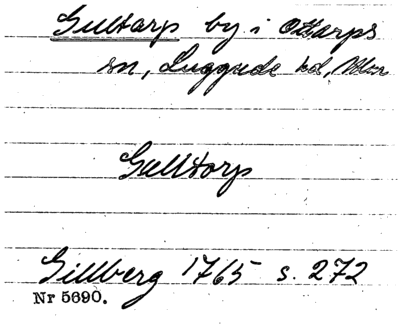 Gultarp by i Ottarps
sn, Luggude hd, Mlm
Gulltorp
Gillberg 1765 s. 272
Nr 5690.